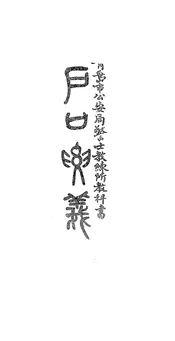 青島市公安局警士教練所教科書
戶口要義